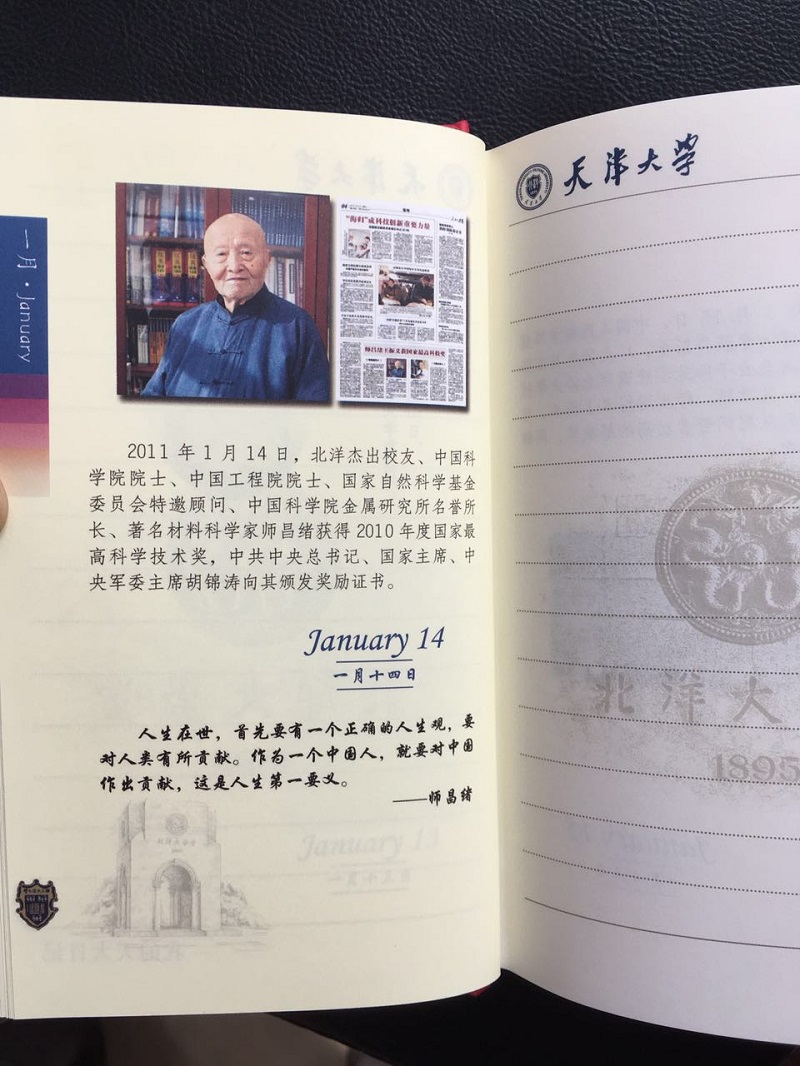 一月·January
“海归”成科技创新重要力量
师昌绪王振义获国家最高科技奖
2011年1月14日，北洋杰出校友、中国科
学院院士、中国工程院院士、国家自然科学基金
委员会特邀顾问、中国科学院金属研究所名誉所
长、著名材料科学家师昌绪获得2010年度国家最
高科学技术奖，中共中央总书记、国家主席、中
央军委主席胡锦涛向其颁发奖励证书。
January 14
一月十四日
人生在世，首先要有一个正确的人生观，要
对人类有所贡献。作为一个中国人，就要对中国
作出贡献，这是人生第一要义。
——师昌绪
天津大学
北洋大
1895